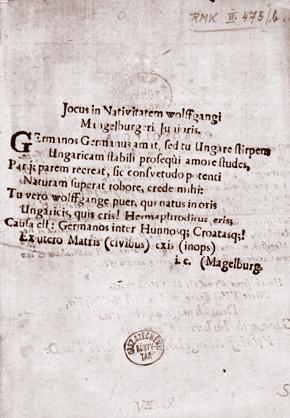 RMK II. 475/b.
Jocus in Nativitatem wolffgangi
Magelburgeri Junioris.
Germanos Germanus amat, sed tu Ungare stirpem
Ungaricam stabili prosequi amore studes,
Par parem recreat, sic consvetudo potenti
Naturam superat robore, crede mihi:
Tu vero wolffgange puer, qui natus in oris
Ungaricis, quis eris! Hermaphroditus eris;
Causa est: Germanos inter Hunnosq; Croatasq;!
Ex utero Matris (civibus) exis (inops)
i. e. (Magelburg.
ORSZ. SZÉCHÉNYI
KÖNYV
TÁR
VII. 9